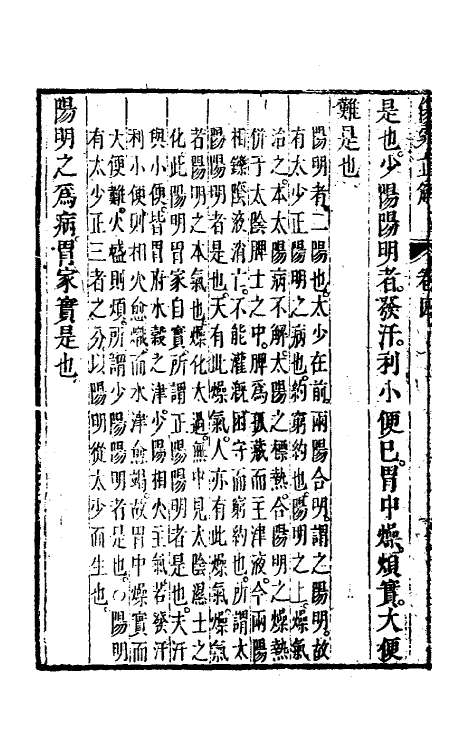 卷四
是也少陽陽明者發汗利小便已胃中燥煩實大便
難是也
陽明者二陽也太少在前兩陽合明謂之陽明故
有太少正陽明之病也約窮約也陽明之上燥氣
治之本太陽病不解太陽之標熱合陽明之燥熱
併于太陰脾土之中脾為孤藏而主津液今兩陽
相鑠臟液消亡不能灌溉困守而窮約也所謂太
陽陽明者是也天有此燥氣人亦有此燥氣燥氣
者陽明之本氣也燥化大過無中見太陰濕土之
化此陽明胃家自實所謂正陽陽明者是也夫汗
與小便皆胃府水穀之津少陽相火主氣若發汗
利小便則相火愈熾而水津愈竭故胃中燥實而
大便難火盛則煩所謂少陽陽明者是也○陽明
有太少正三者之分以陽明從太少而生也
陽明之為病胃家實是也